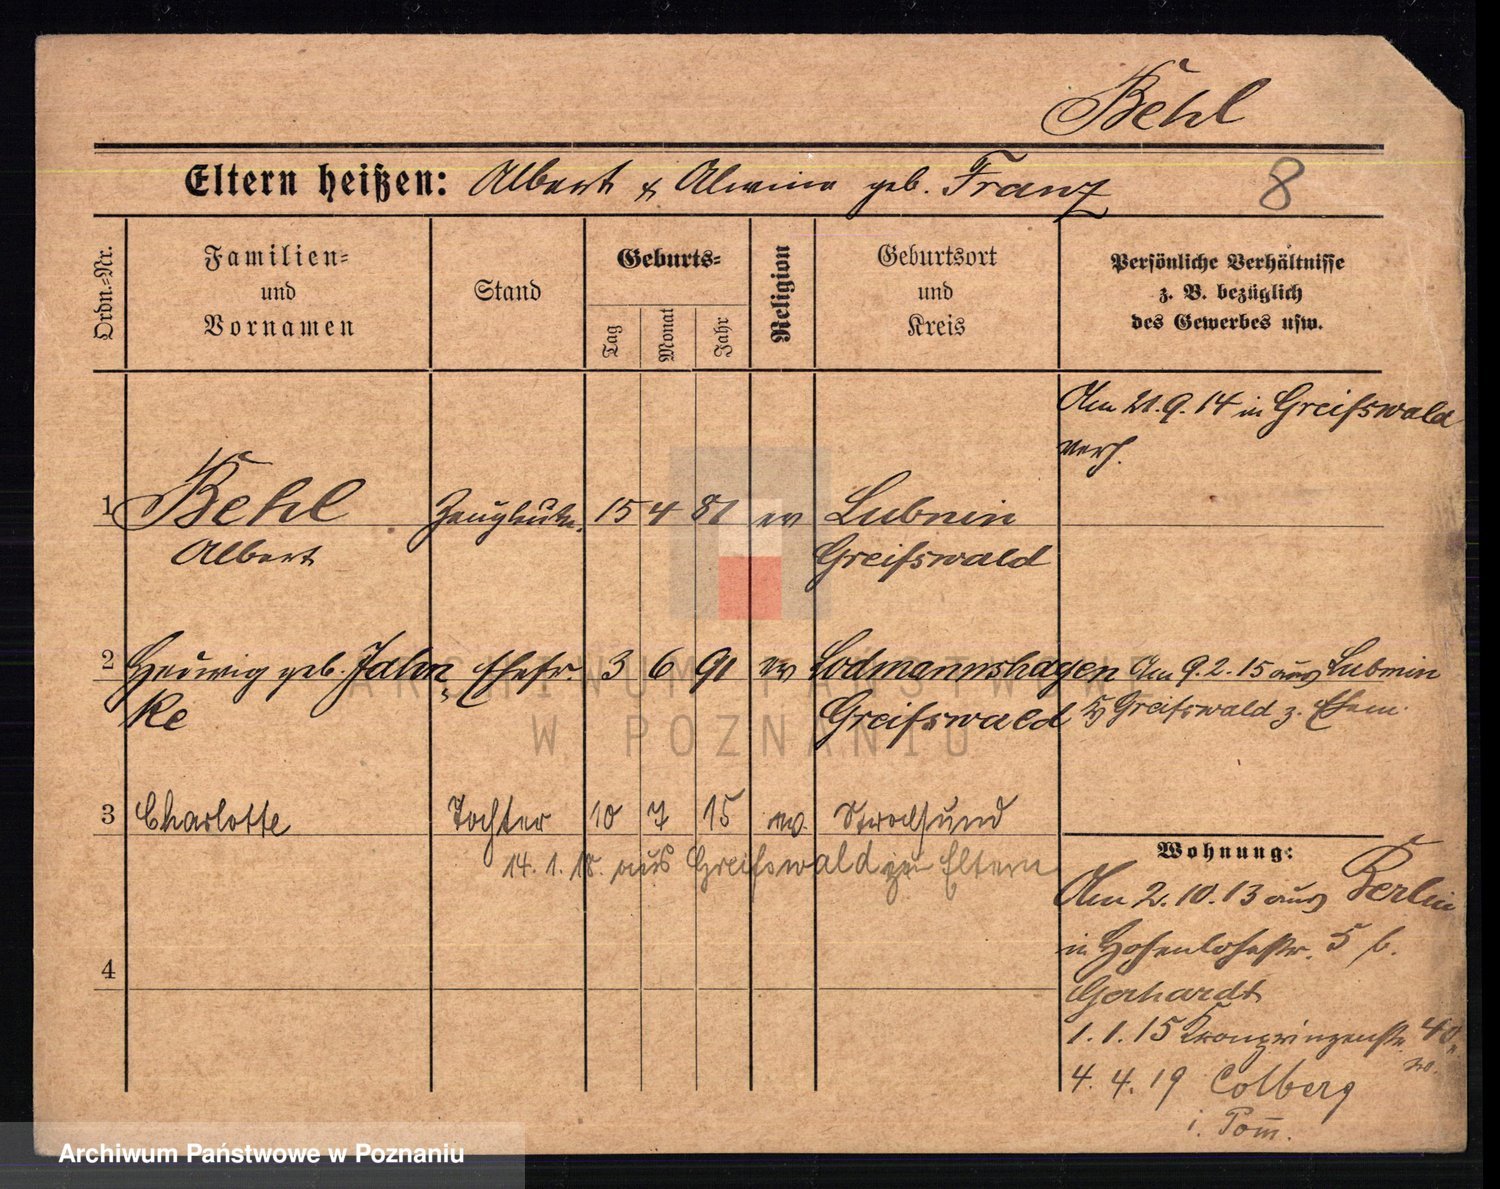 Behl
Eltern heißen: Albert & Alwine geb. Franz
8
Ordn.-Nr.
Familien-
und
Vornamen
Stand
Geburts-
Tag
Monat
Jahr
Religion
Geburtsort
und
Kreis
Persönliche Verhältnisse
z. B. bezüglich
des Gewerbes usw.
Am 21.9.14 in Greifswald
verh.
1 Behl 15 4 81 ev Lubmin
Albert Greifswald
2 Hedwig geb. Jahn Ehefr. 3 6 91 ev Lodmannshagen Am 9.2.15 aus Lubmin
ke Greifswald Greifswald z. Ehem.
3 Charlotte Tochter 10 7 15 ev. Stralsund
14. 1. 18. aus Greifswald zu Eltern
Wohnung:
Am 2.10.13 aus Berlin
in Hohenlohestr. 5 b.
Gerhardt
4
1.1.15 Kronprinzenstr. 40
4. 4. 19 Colberg
i. Pom.
ARCHIWUM PAŃSTWOWE
W POZNANIU
Archiwum Państwowe w Poznaniu